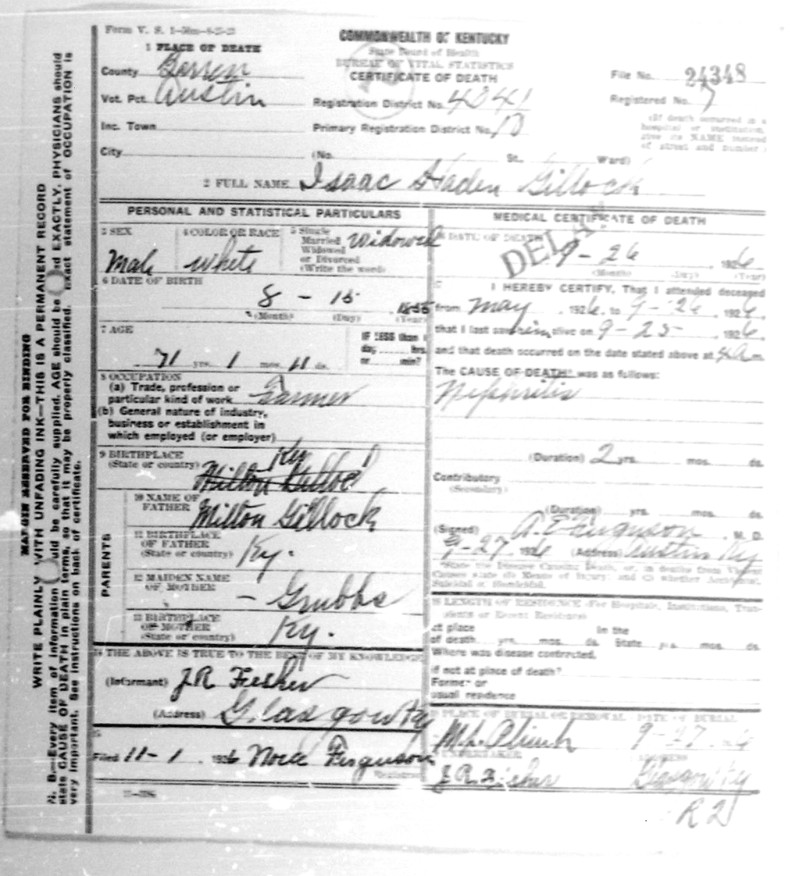 Form V. S.
COMMONWEALTH OF KENTUCKY
State Board of Health
BUREAU OF VITAL STATISTICS
CERTIFICATE OF DEATH
1 PLACE OF DEATH
County Barren
Vot. Pct. Austin
Inc. Town
City
File No. 24348
Registration District No. 4041
Registered No. 7
Primary Registration District No.
(If death occurred in a
hospital or institution,
give its NAME instead
of street and number.)
(No. St., Ward)
2 FULL NAME Isaac Haden Gillock
PERSONAL AND STATISTICAL PARTICULARS
3 SEX
Male
4 COLOR OR RACE
white
5 Single
Married
Widowed
or Divorced
(Write the word)
Widowed
6 DATE OF BIRTH
8 - 15 1855
(Month) (Day) (Year)
7 AGE
71 yrs. 1 mos. 11 ds.
IF LESS than 1
day, hrs.
or min?
8 OCCUPATION
(a) Trade, profession or
particular kind of work Farmer
(b) General nature of industry,
business or establishment in
which employed (or employer)
9 BIRTHPLACE
(State or country) Ky
Milton Gillock
PARENTS
10 NAME OF
FATHER Milton Gillock
11 BIRTHPLACE
OF FATHER
(State or country) Ky.
12 MAIDEN NAME
OF MOTHER - Grubbs
13 BIRTHPLACE
OF MOTHER
(State or country) Ky.
14 THE ABOVE IS TRUE TO THE BEST OF MY KNOWLEDGE
(Informant) J.R.
(Address) Glasgow Ky
15
Filed 11-1 1926 Nora Ferguson
Registrar
MEDICAL CERTIFICATE OF DEATH
DATE OF DEATH
9-26 1926
(Month) (Day) (Year)
DELAY
I HEREBY CERTIFY, That I attended deceased
from May 1926, to 9-26, 1926,
that I last saw him alive on 9-25- 1926
and that death occurred on the date stated above at m.
The CAUSE OF DEATH was as follows:
Nephritis
(Duration) 2 yrs. mos. ds.
Contributory
(Secondary)
(Duration) yrs. mos. ds.
(Signed) Ferguson, M. D.
9-27 1926 (Address) Austin Ky
State the Disease Causing Death, or, in deaths from Violent
Causes state (1) Means of Injury; and (2) whether Accidental,
Suicidal or Homicidal.
18 LENGTH OF RESIDENCE (For Hospitals, Institutions, Tran-
sients or Recent Residents)
At place
of death. yrs. mos. ds.
In the
State yrs. mos. ds.
Where was disease contracted,
if not at place of death?
Former or
usual residence
19 PLACE OF BURIAL OR REMOVAL
DATE OF BURIAL
9-27
UNDERTAKER
ADDRESS
J.R. Glasgow Ky
R2
MARGIN RESERVED FOR BINDING
WRITE PLAINLY WITH UNFADING INK—THIS IS A PERMANENT RECORD
N. B.—Every item of information should be carefully supplied. AGE should be stated EXACTLY. PHYSICIANS should
state CAUSE OF DEATH in plain terms, so that it may be properly classified. Exact statement of OCCUPATION is
very important. See instructions on back of certificate.